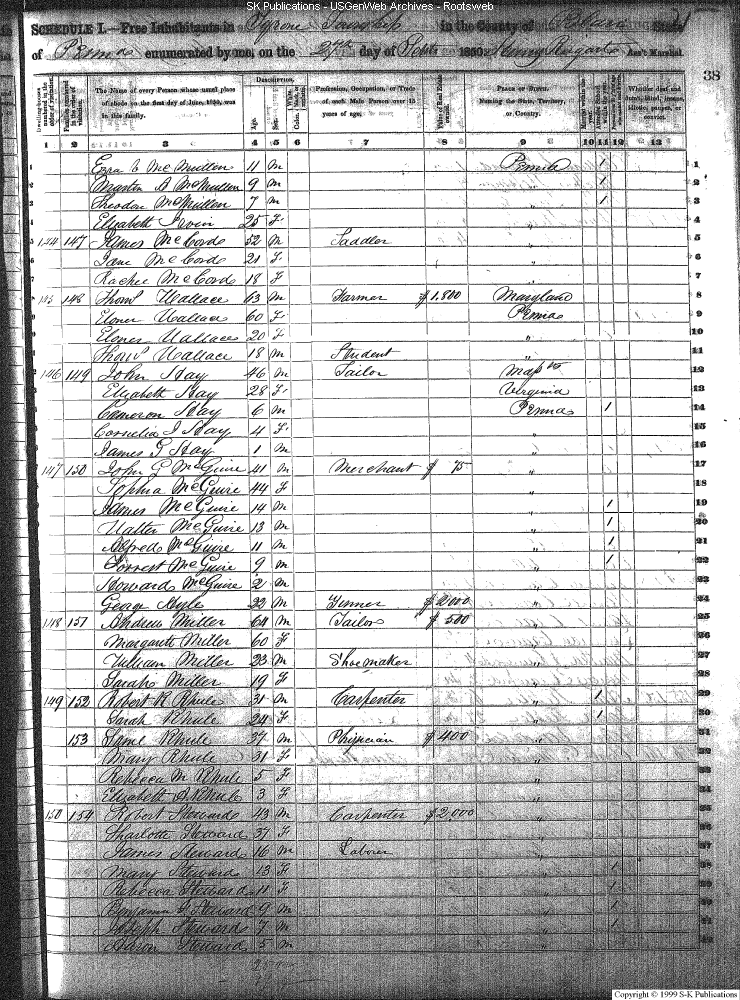 SK Publications - USGenWeb Archives - Rootsweb
SCHEDULE I.—Free Inhabitants in Tyrone Township in the County of Blair State
of Penna enumerated by me, on the 27th day of Sept 1850. Henry Ass't Marshal.
38
Dwelling-houses numbered in the order of visitation.
Families numbered in the order of visitation.
The Name of every Person whose usual place of abode on the first day of June, 1850, was in this family.
Description.
Age.
Sex.
Color, White, black, or mulatto.
Profession, Occupation, or Trade of each Male Person over 15 years of age.
Value of Real Estate owned.
Place of Birth. Naming the State, Territory, or Country.
Married within the year.
Whether deaf and dumb, blind, insane, idiotic, pauper, or convict.
1 2 3 4 5 6 7 8 9 10 11 12 13
1 Ezra McMullen 11 M Penna / 1
2 Martin B McMullen 9 M " / 2
3 Theodore McMullen 7 M " / 3
4 Elizabeth Irvin 25 F " 4
5 144 147 James McCord 52 M Saddler " 5
6 Jane McCord 21 F " 6
7 Rachel McCord 18 F " 7
8 145 148 Thos Wallace 63 M Farmer $1,800 Maryland 8
9 Elonor Wallace 60 F Penna 9
Elonor Wallace 20 F " 10
Thos Wallace 18 M Student " 11
146 149 John Hay 46 M Tailor Mass 12
Elizabeth Hay 28 F Virginia 13
Cameron Hay 6 M Penna / 14
Cornelia J Hay 4 F " 15
James G Hay 1 M " 16
147 150 John G McGuire 41 M Merchant $ 75 " 17
Sophia McGuire 44 F " 18
James McGuire 14 M " / 19
Walter McGuire 13 M " / 20
Alfred McGuire 11 M " / 21
Forrest McGuire 9 M " / 22
Howard McGuire 2 M " 23
George 22 M $2000 " 24
148 151 Andrew Miller 64 M Tailor $500 " 25
Margaret Miller 60 F " 26
William Miller 23 M Shoemaker " 27
Sarah Miller 19 F " 28
149 152 Robert R Rhule 31 M Carpenter " / 29
Sarah Rhule 24 F " / 30
153 Saml Rhule 37 M Physician $400 " 31
Mary Rhule 31 F " 32
Rebecca M Rhule 5 F " 33
Elizabeth A Rhule 3 F " 34
150 154 Robert Steward 43 M Carpenter $2,000 " 35
Charlotte Steward 37 F " 36
James Steward 16 M Laborer " 37
Mary Steward 13 F " / 38
Rebecca Steward 11 F " / 39
Benjamin F Steward 9 M " / 40
Joseph Steward 7 M " / 41
Aaron Steward 5 M " 42
Copyright © 1999 S-K Publications